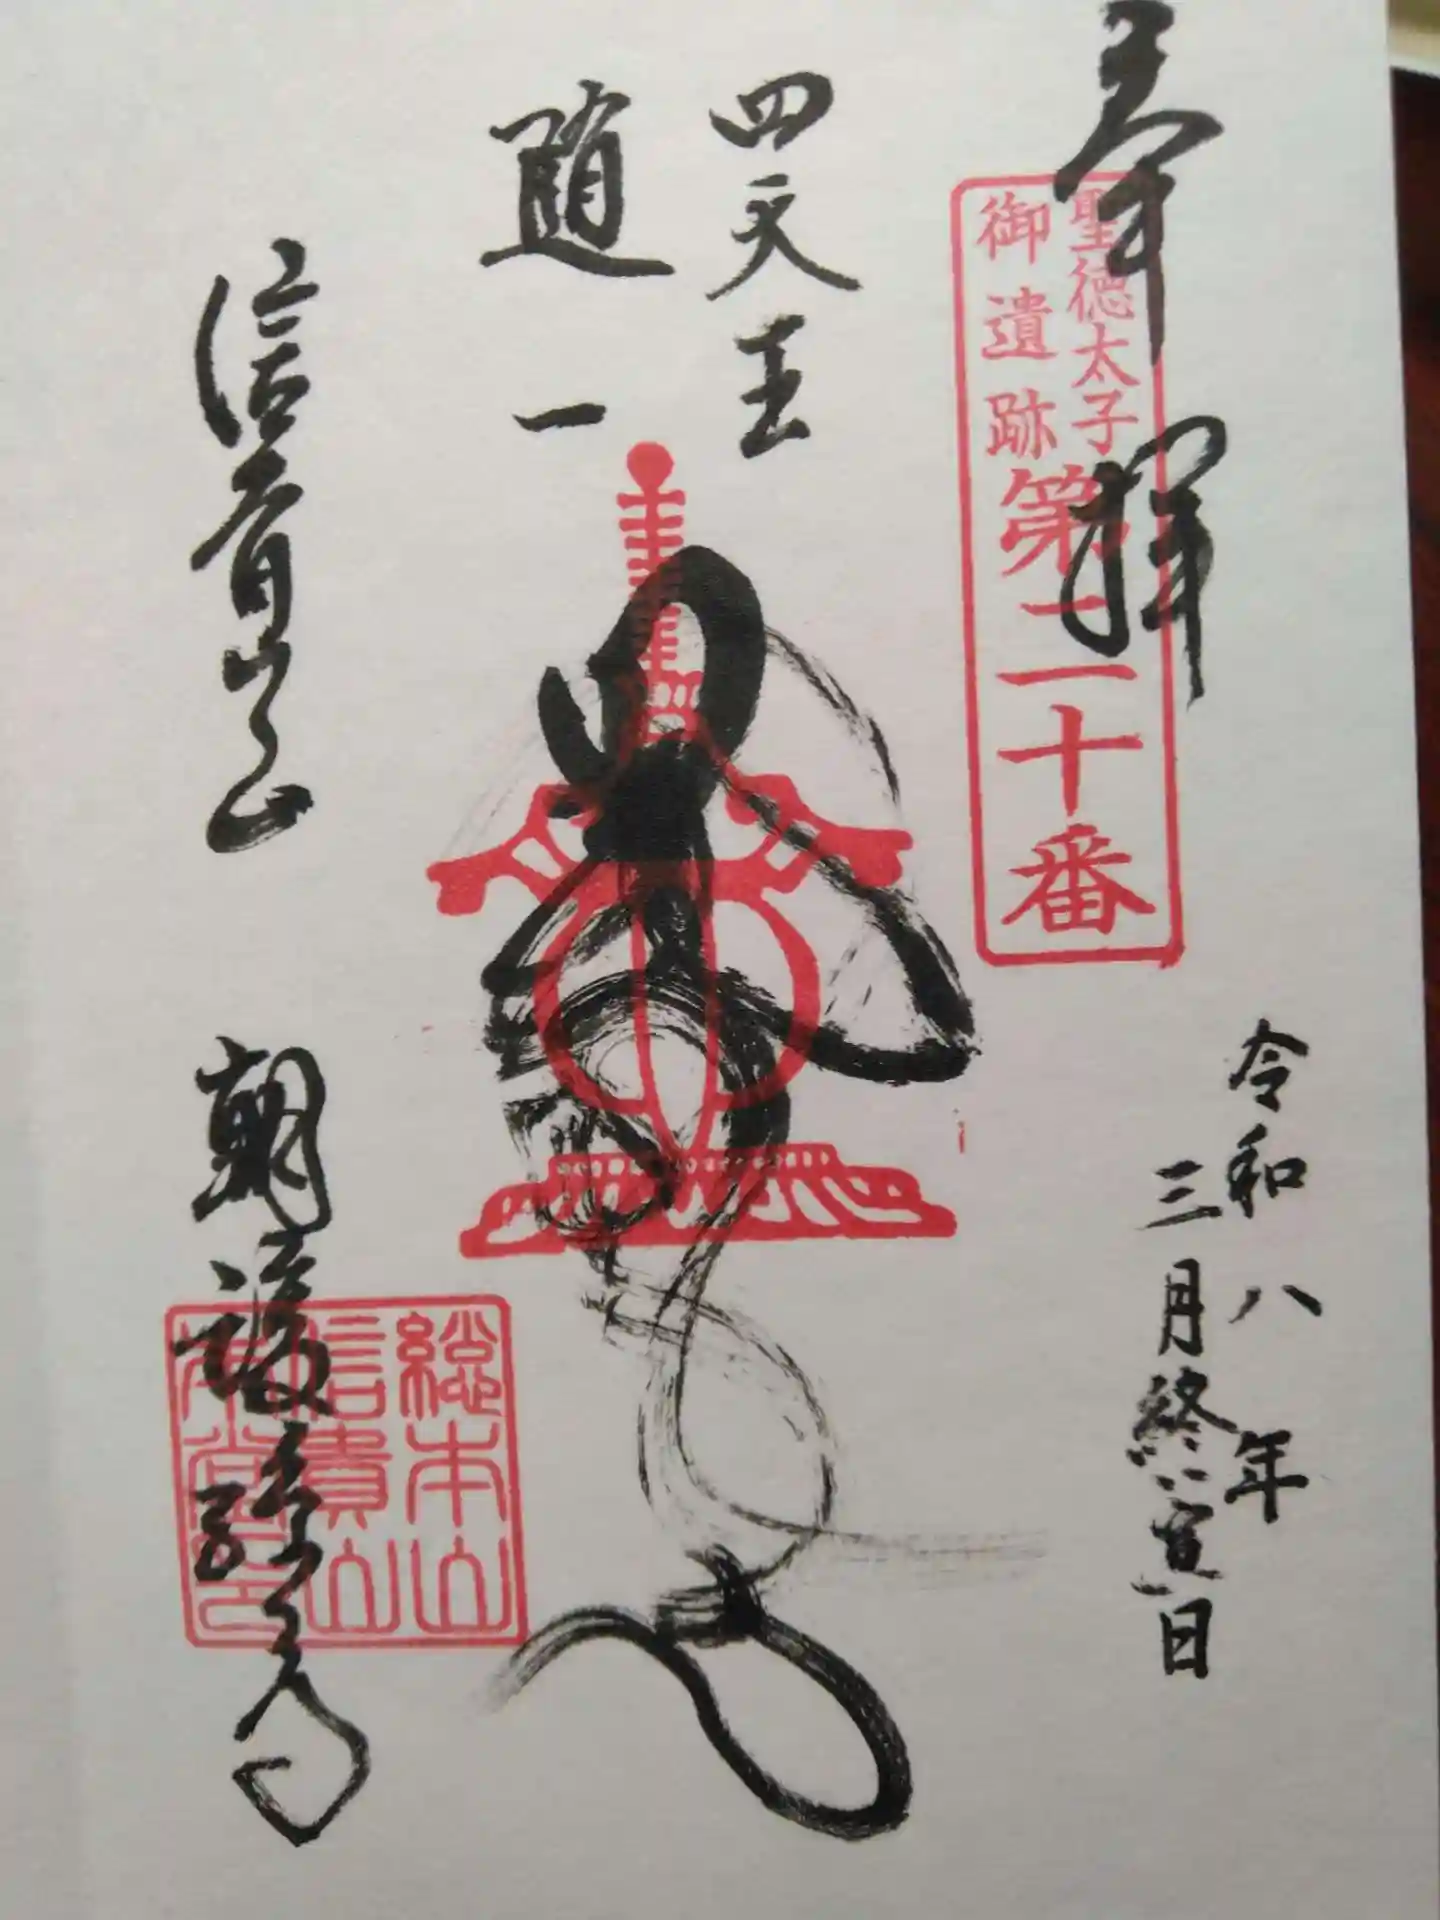 奉拝
聖徳太子
御遺跡
第二十番
令和八年
三月終寅日
四天王
随一
信貴山
朝護孫子寺
総本山
信貴山
本堂印